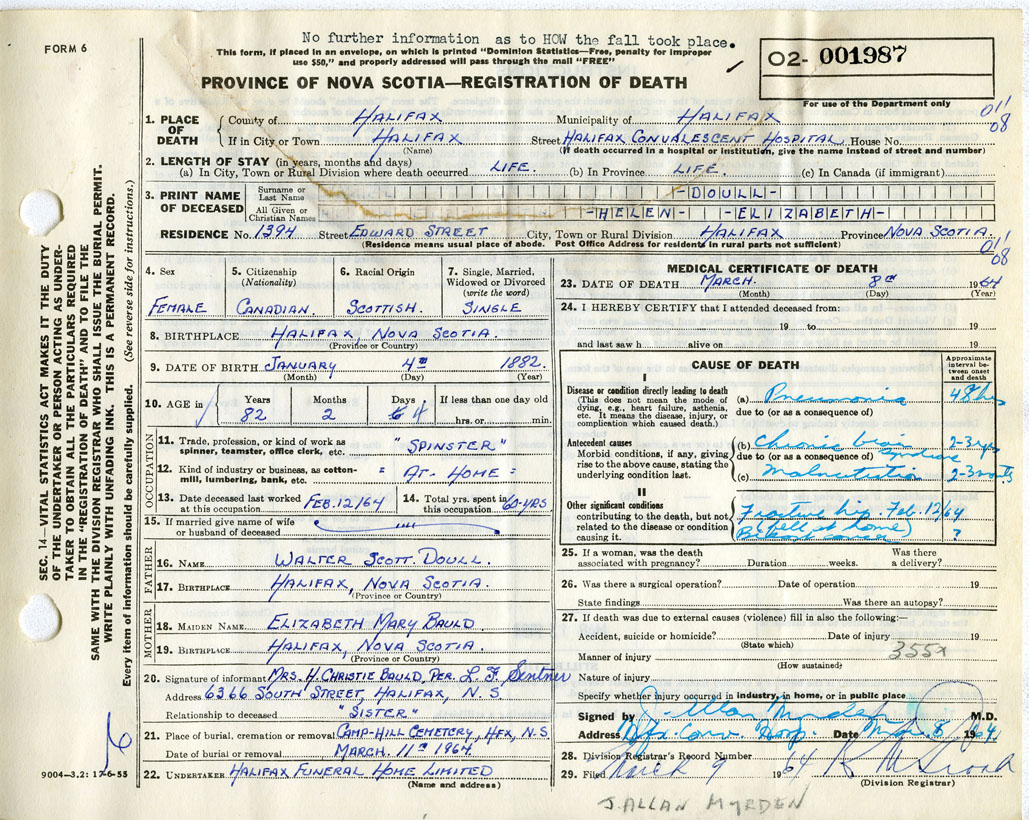 FORM 6
No further information as to HOW the fall took place.
This form, if placed in an envelope, on which is printed "Dominion Statistics—Free, penalty for improper
use $50," and properly addressed will pass through the mail "FREE"
PROVINCE OF NOVA SCOTIA—REGISTRATION OF DEATH
02- 001987
For use of the Department only
1. PLACE OF DEATH
County of HALIFAX Municipality of HALIFAX
011
08
If in City or Town HALIFAX Street HALIFAX CONVALESCENT HOSPITAL House No.
(Name) (If death occurred in a hospital or institution, give the name instead of street and number)
2. LENGTH OF STAY (in years, months and days)
(a) In City, Town or Rural Division where death occurred LIFE. (b) In Province LIFE. (c) In Canada (if immigrant)
3. PRINT NAME OF DECEASED
Surname or Last Name -DOULL-
All Given or Christian Names -HELEN- -ELIZABETH-
RESIDENCE No. 1394 Street EDWARD STREET City, Town or Rural Division HALIFAX Province NOVA SCOTIA
(Residence means usual place of abode. Post Office Address for residents in rural parts not sufficient)
011
08
4. Sex 5. Citizenship (Nationality) 6. Racial Origin 7. Single, Married, Widowed or Divorced (write the word)
FEMALE CANADIAN. SCOTTISH. SINGLE
8. BIRTHPLACE HALIFAX, NOVA SCOTIA.
(Province or Country)
9. DATE OF BIRTH JANUARY 4TH 1882.
(Month) (Day) (Year)
10. AGE in Years Months Days If less than one day old
82 2 4 hrs. or min.
OCCUPATION
11. Trade, profession, or kind of work as spinner, teamster, office clerk, etc. "SPINSTER"
12. Kind of industry or business, as cotton-mill, lumbering, bank, etc. = AT- HOME =
13. Date deceased last worked at this occupation FEB. 12/64 14. Total yrs. spent in this occupation 60-YRS
15. If married give name of wife or husband of deceased
FATHER
16. NAME WALTER SCOTT. DOULL.
17. BIRTHPLACE HALIFAX, NOVA SCOTIA.
(Province or Country)
MOTHER
18. MAIDEN NAME ELIZABETH MARY BAULD
19. BIRTHPLACE HALIFAX, NOVA SCOTIA.
(Province or Country)
20. Signature of informant MRS. H. CHRISTIE BAULD, PER. L. F. Sentner
Address 6366 SOUTH STREET, HALIFAX, N. S
Relationship to deceased "SISTER"
21. Place of burial, cremation or removal CAMP-HILL CEMETERY, HFX, N. S.
Date of burial or removal MARCH. 11TH 1964.
22. UNDERTAKER HALIFAX FUNERAL HOME LIMITED
(Name and address)
9004—3.2: 17-6-55
6
MEDICAL CERTIFICATE OF DEATH
23. DATE OF DEATH MARCH. 8TH 1964
(Month) (Day) (Year)
24. I HEREBY CERTIFY that I attended deceased from:
19 to 19
and last saw h alive on 19
CAUSE OF DEATH
Approximate interval between onset and death
I
Disease or condition directly leading to death
(This does not mean the mode of dying, e.g., heart failure, asthenia, etc. It means the disease, injury, or complication which caused death.)
(a) Pneumonia 48 hrs
due to (or as a consequence of)
Antecedent causes
Morbid conditions, if any, giving rise to the above cause, stating the underlying condition last.
(b) Chronic brain syndrome 2-3 yrs
due to (or as a consequence of)
(c) Malnutrition 2-3 months
II
Other significant conditions
contributing to the death, but not related to the disease or condition causing it.
Fracture hip. Feb. 12/64
(fell at home)
?
25. If a woman, was the death associated with pregnancy? Duration weeks. Was there a delivery?
26. Was there a surgical operation? Date of operation 19
State findings Was there an autopsy?
27. If death was due to external causes (violence) fill in also the following:—
Accident, suicide or homicide? Date of injury 19
(State which)
Manner of injury 355x
(How sustained)
Nature of injury
Specify whether injury occurred in industry, in home, or in public place
Signed by J. Allan Myrden M.D.
Address Hfx. Conv. Hosp. Date Mar. 8 1964
28. Division Registrar's Record Number
29. Filed March 9 1964
(Division Registrar)
J. ALLAN MYRDEN
SEC. 14—VITAL STATISTICS ACT MAKES IT THE DUTY
OF THE UNDERTAKER OR PERSON ACTING AS UNDER-
TAKER TO OBTAIN ALL THE PARTICULARS REQUIRED
IN THE "REGISTRATION OF DEATH" AND TO FILE THE
SAME WITH THE DIVISION REGISTRAR WHO SHALL ISSUE THE BURIAL PERMIT.
WRITE PLAINLY WITH UNFADING INK. THIS IS A PERMANENT RECORD.
Every item of information should be carefully supplied. (See reverse side for instructions.)